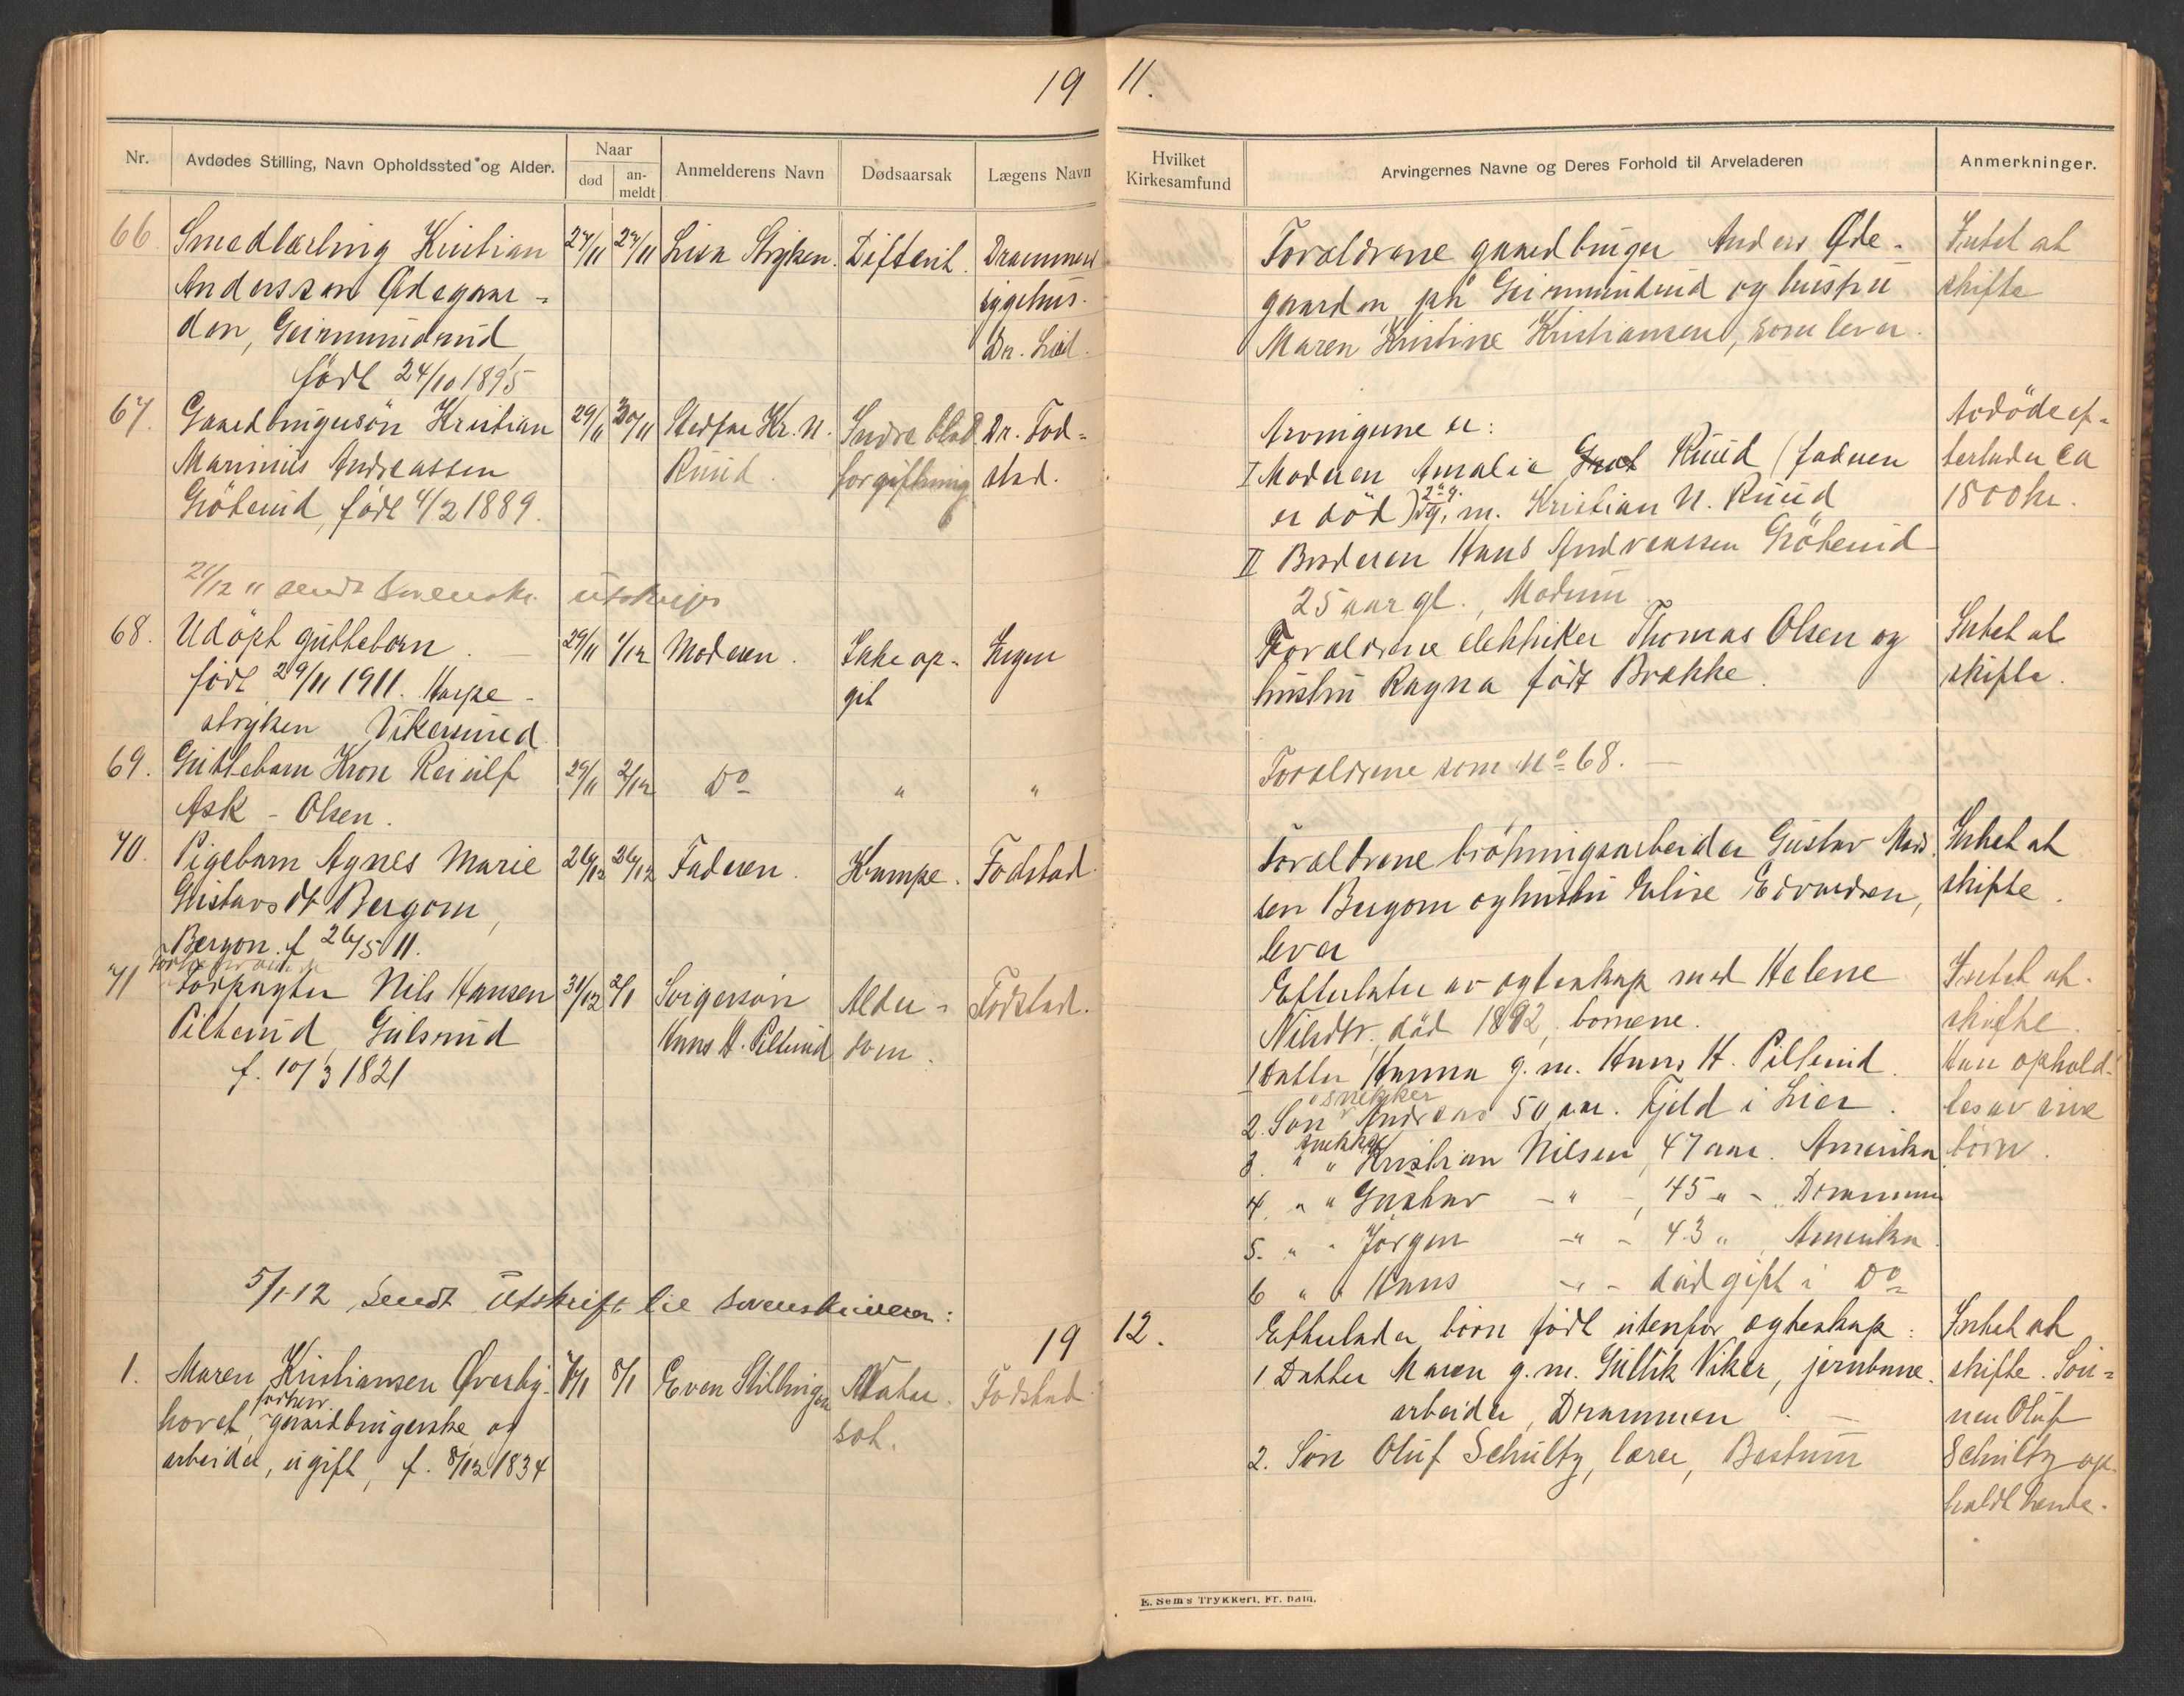 19 11.
Nr. Avdødes Stilling, Navn Opholdssted og Alder. Naar død an-meldt Anmelderens Navn Dødsaarsak Lægens Navn
Hvilket Kirkesamfund Arvingernes Navne og Deres Forhold til Arveladeren Anmerkninger.
66. Smedlærling Kristian 27/11 27/11 Lisa Stryken. Difterit. Drammens
Anderssen Ødegaar-
sygehus.
den, Geirmundrud,
Dr. Lid.
født 24/10 1895
67. Gaardbrugersøn Kristian 29/11 30/11 Stedfar Kr. N. Indre blod Dr. Fod-
Marinius Andreassen Ruud. forgiftning stad.
Gröterud, født 4/2 1889.
21/12 11 sendt utskrift
68. Udöpt guttebarn. 29/11 1/12 Moderen. Ikke op- Ingen
født 29/11 1911. git
stryken Vikersund.
69. Guttebarn Reiulf 29/11 2/12 Do " "
Ask - Olsen.
70. Pigebarn Agnes Marie 26/12 26/12 Faderen. Krampe. Fodstad.
Gustavsdt Bergom,
Bergom. f 26/5 11.
71 Forpagter Nils Hansen 31/12 2/1 Svigersön Alder- Fodstad.
Pilterud, Gulsrud Hans H. Pilterud dom.
f. 10/3 1821
5/1-12 Sendt Utskrift til sorenskriveren:
19 12.
1. Maren Kristiansen Øverby- 8/1 Even Stillingen Fodstad.
hovet, forhenv. gaardbrugerske og sot.
arbeider, ugift, f. 8/12 1834
Forældrene gaardbruger Anders Øde- Intet at
gaarden på Geirmundrud og hustru skifte
Maren Kristine Kristiansen, som lever.
Arvingerne er: Avdöde ef-
I Moderen Amalie Ruud (faderen terlader ca
er död) 2 g. g. m. Kristian N. Ruud 1800 kr.
II Broderen Hans Andreassen Gröterud
25 aar gl., Modum.
Forældrene elektriker Thomas Olsen og Intet at
hustru Ragna født Brakke. skifte.
Forældrene som No 68.
Forældrene Gustav Mad- Intet at
sen Bergom og hustru Elise Edvardsen, skifte.
lever
Efterlater av egteskap med Helene Intet at
Nilsdtr. död 1892, børnene. skifte.
1 Datter Hanna g. m. Hans H. Pilterud. Han ophold-
2. Sön snekker Andreas 50 aar. Fjeld i Lier. tes av sine
3. " snekker Kristian Nilsen, 47 aar. Amerika. börn.
4. " " Gustav - " -, 45 " - Drammen
5. " " Jörgen - " - 43 " Amerika.
6 " " Hans - " - död gift i Do
Efterlader börn födt utenfor egteskap: Intet at
1. Datter Maren g. m. Gullik Viker, jernbane- skifte. Sön-
arbeider, Drammen. nen Oluf
2. Sön Oluf Schultz, lærer, Bestum Schultz op-
holdt hende.
E. Sem's Trykkeri, Fr. hald.